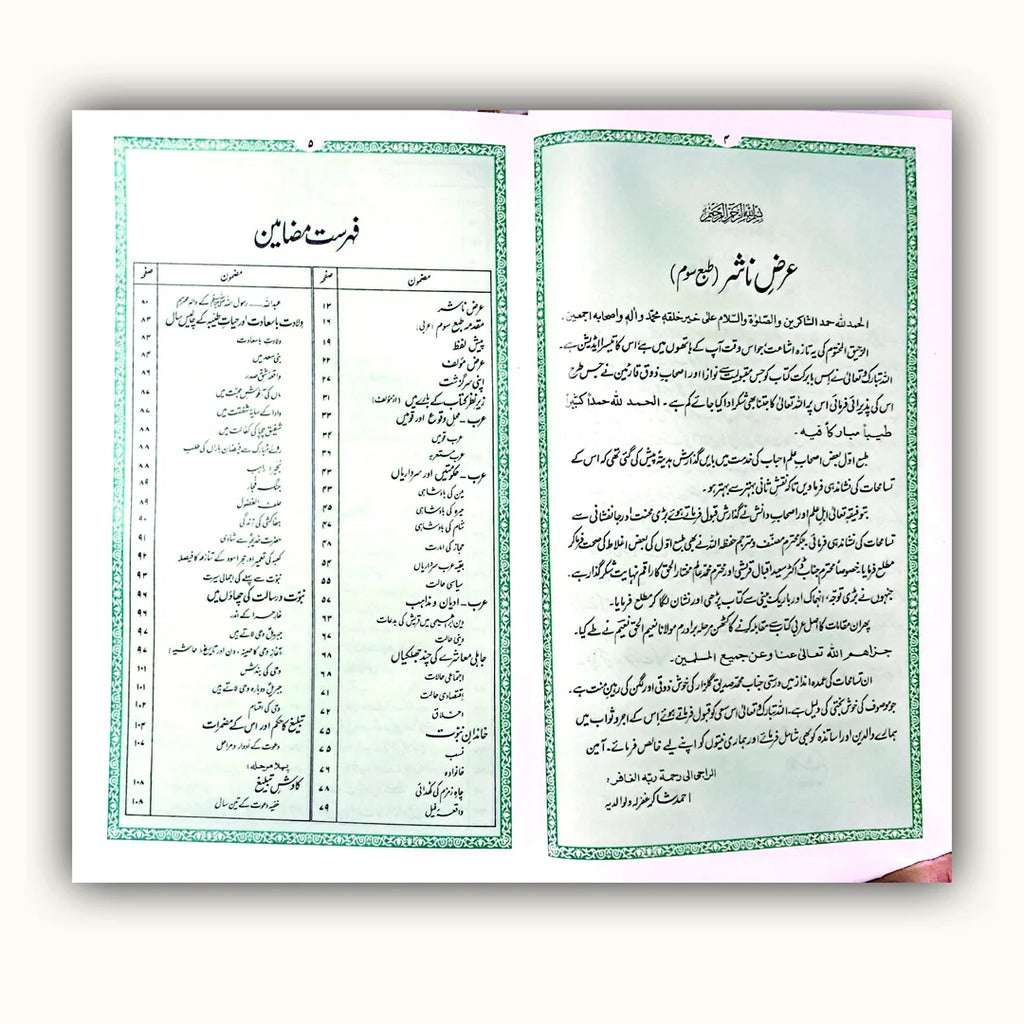 ۴
بسم اللہ الرحمن الرحیم
عرضِ ناشر (طبع سوم)
الحمد للہ حمد الشاکرین والصلوٰۃ والسلام علی خیر خلقہٖ محمد وآلہٖ واصحابہ اجمعین۔
الرحیق المختوم کی یہ تازہ اشاعت جو اس وقت آپ کے ہاتھوں میں ہے اس کا تیسرا ایڈیشن ہے۔
اللہ تبارک تعالیٰ نے اس بابرکت کتاب کو جس مقبولیت سے نوازا اور اصحابِ ذوق قارئین نے جس طرح
اس کی پذیرائی فرمائی اس پر اللہ تعالیٰ کا جتنا بھی شکر ادا کیا جائے کم ہے۔ الحمد للہ حمداً کثیراً
طیباً مبارکاً فیہ۔
طبع اوّل بعض اصحابِ علم احباب کی خدمت میں بایں گذارش ہدیۃً پیش کی گئی تھی کہ اس کے
تسامحات کی نشاندہی فرما دیں تاکہ نقشِ ثانی بہتر سے بہتر ہو۔
بتوفیقہٖ تعالیٰ اہلِ علم اور اصحابِ دانش نے گذارش قبول فرماتے ہوئے بڑی محنت اور جانفشانی سے
تسامحات کی نشاندہی فرمائی بلکہ محترم مصنف و مترجم حفظہ اللہ نے بھی طبع اوّل کی بعض اغلاط کی صحت فرما کر
مطلع فرمایا۔ خصوصاً محترم جناب ڈاکٹر سعید اقبال قریشی اور محترم محمد عالم مختار الحق کا راقم نہایت شکر گذار ہے۔
جنہوں نے بڑی توجہ، انہماک اور باریک بینی سے کتاب پڑھی اور نشان لگا کر مطلع فرمایا۔
پھر ان مقامات کا اصل عربی کتاب سے مقابلہ کرنے کا کٹھن مرحلہ برادرم مولانا نعیم الحق نعیم نے طے کیا۔
جزاھم اللہ تعالیٰ عنا وعن جمیع المسلمین۔
ان تسامحات کی عمدہ انداز میں درستی جناب محمد صدیق گلزار کی خوش ذوقی اور لگن کی رہین منت ہے۔
جو موصوف کی خوش بختی کی دلیل ہے۔ اللہ تبارک تعالیٰ اس سعی کو قبول فرماتے ہوئے اس کے اجر و ثواب میں
ہمارے والدین اور اساتذہ کو بھی شامل فرمائے اور ہماری نیتوں کو اپنے لیے خالص فرمائے۔ آمین
الراجی الی رحمۃ ربہ الغافر:
احمد شاکر غفرلہ ولوالدیہ
۵
فہرست مضامین
مضمون صفحہ
عرضِ ناشر ۱۳
مقدمہ طبع سوم (عربی) ۱۶
پیش لفظ ۱۹
عرضِ مؤلف ۲۲
اپنی سرگزشت ۲۷
زیرِ نظر کتاب کے بارے میں (از مؤلف) ۳۱
عرب - محل وقوع اور قومیں ۳۳
عرب قومیں ۳۴
عرب مستعربہ ۳۶
عرب - حکومتیں اور سرداریاں ۴۳
یمن کی بادشاہی ۴۳
حیرہ کی بادشاہی ۴۵
شام کی بادشاہی ۴۷
حجاز کی امارت ۴۸
بقیہ عرب سرداریاں ۵۴
سیاسی حالت ۵۵
عرب - ادیان و مذاہب ۵۷
دینِ ابراہیمی میں قریش کی بدعات ۶۳
دینی حالت ۶۷
جاہلی معاشرے کی چند جھلکیاں ۶۸
اجتماعی حالات ۶۸
اقتصادی حالت ۷۱
اخلاق ۷۲
خاندانِ نبوت ۷۵
نسب ۷۵
خانوادہ ۷۶
چاہِ زمزم کی کھدائی ۷۸
واقعہ فیل ۷۹
مضمون صفحہ
عبداللہ — رسول اللہ ﷺ کے والد محترم ۸۰
ولادت باسعادت اور حیاتِ طیبہ کے چالیس سال ۸۳
ولادت باسعادت ۸۳
بنی سعد میں ۸۴
واقعہ شق صدر ۸۶
ماں کی آغوشِ محبت میں ۸۶
دادا کے سایہ شفقت میں ۸۷
شفیق چچا کی کفالت میں ۸۸
روئے مبارک سے فیضانِ باراں کی طلب ۸۸
بحیرا راہب ۸۸
جنگ فجار ۸۹
حلف الفضول ۸۹
جفاکشی کی زندگی ۹۰
حضرت خدیجہؓ سے شادی ۹۱
کعبہ کی تعمیر اور حجر اسود کے تنازعہ کا فیصلہ ۹۲
نبوت سے پہلے کی اجمالی سیرت ۹۴
نبوت و رسالت کی چھاؤں میں ۹۶
غارِ حرا کے اندر ۹۶
جبریلؑ وحی لاتے ہیں ۹۷
آغاز وحی کا مہینہ، دن اور تاریخ (حاشیہ) ۹۷
وحی کی بندش ۱۰۱
جبریلؑ دوبارہ وحی لاتے ہیں ۱۰۱
وحی کی اقسام ۱۰۲
تبلیغ کا حکم اور اس کے مضمرات ۱۰۴
دعوت کے ادوار و مراحل ۱۰۷
پہلا مرحلہ:
کاوشِ تبلیغ ۱۰۸
خفیہ دعوت کے تین سال ۱۰۸